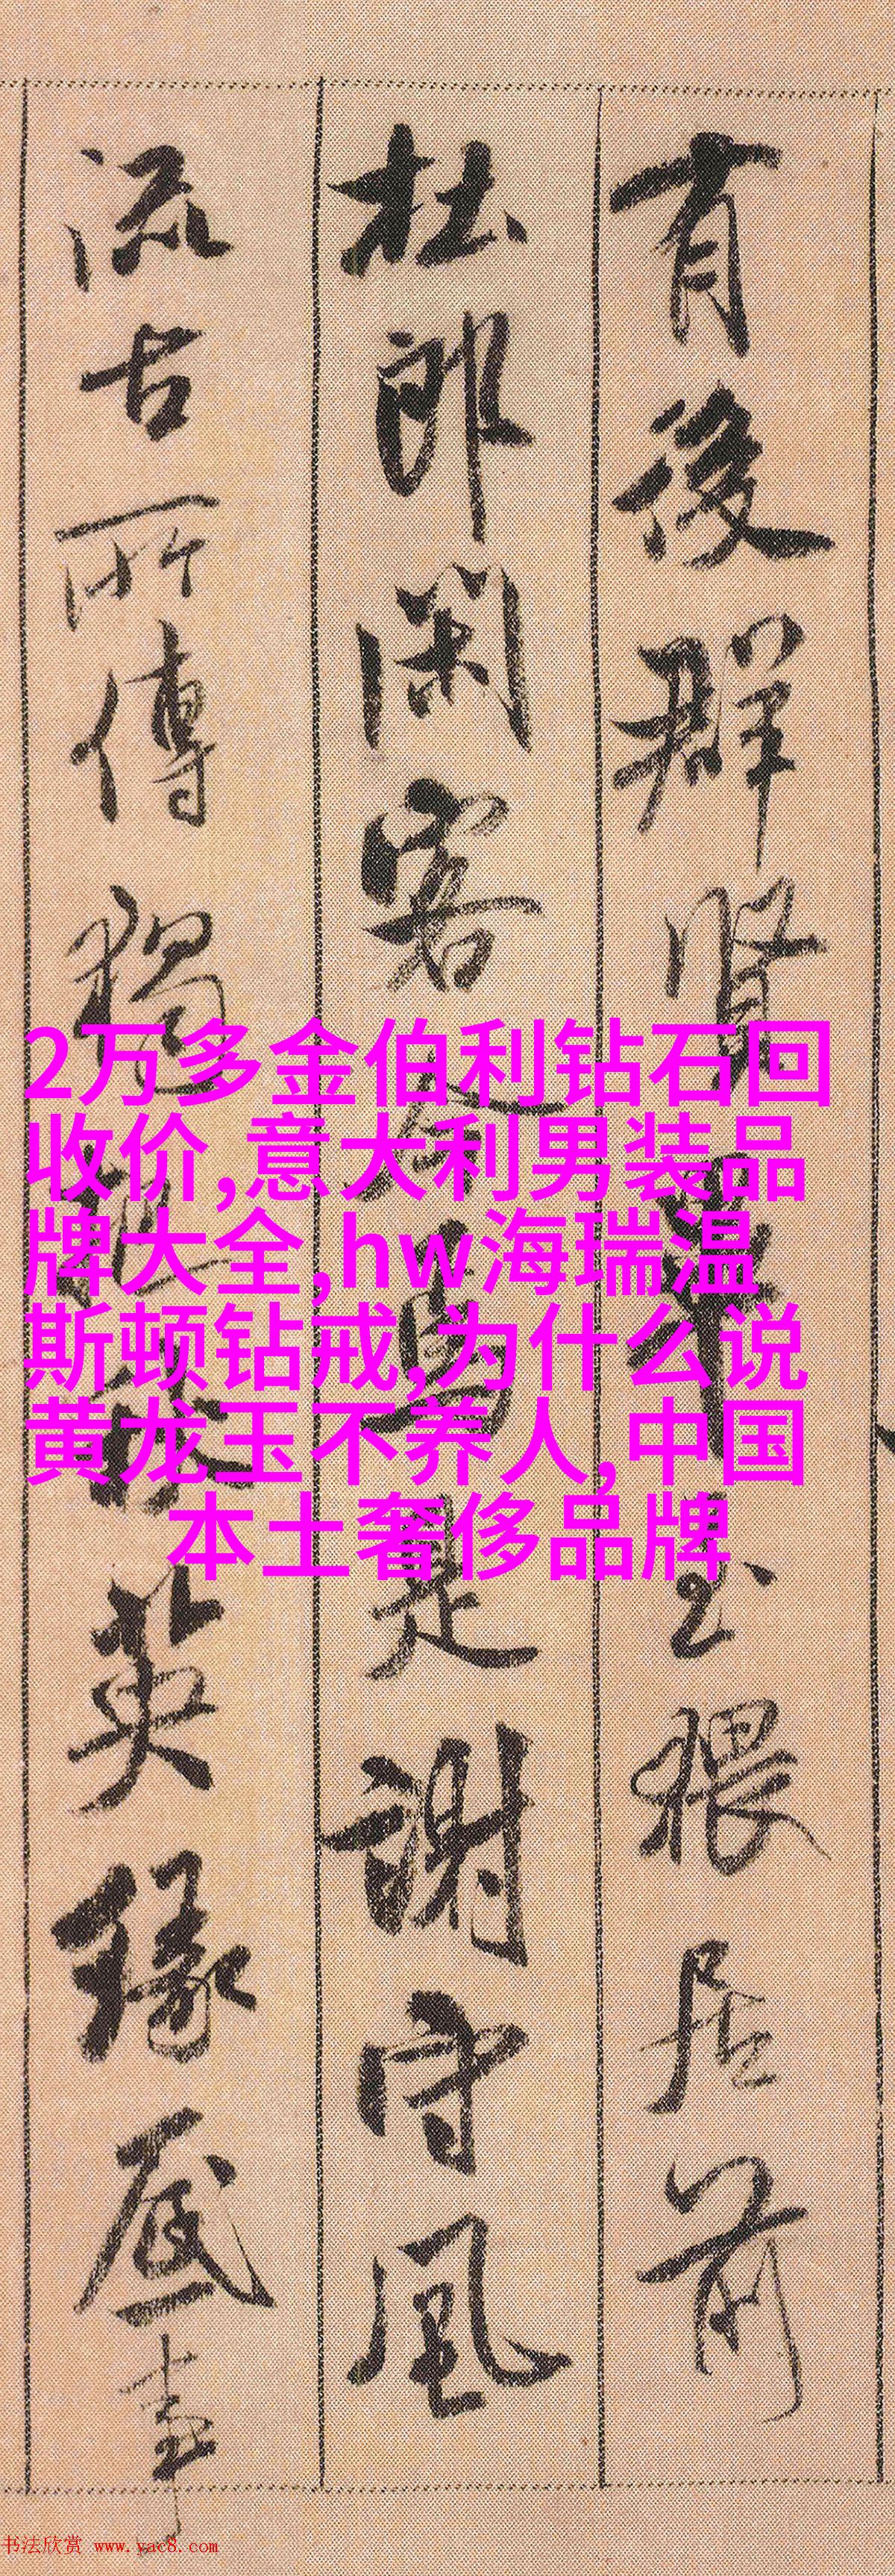 有後群賢畢至猥居前
杜郎閑客今焉是謝守風
流古所傳獨把秋英緣底事
2万多金伯利钻石回
收价,意大利男装品
牌大全,hw海瑞温
斯顿钻戒,为什么说
黄龙玉不养人,中国
本土奢侈品牌
书法欣赏 www.yac8.com